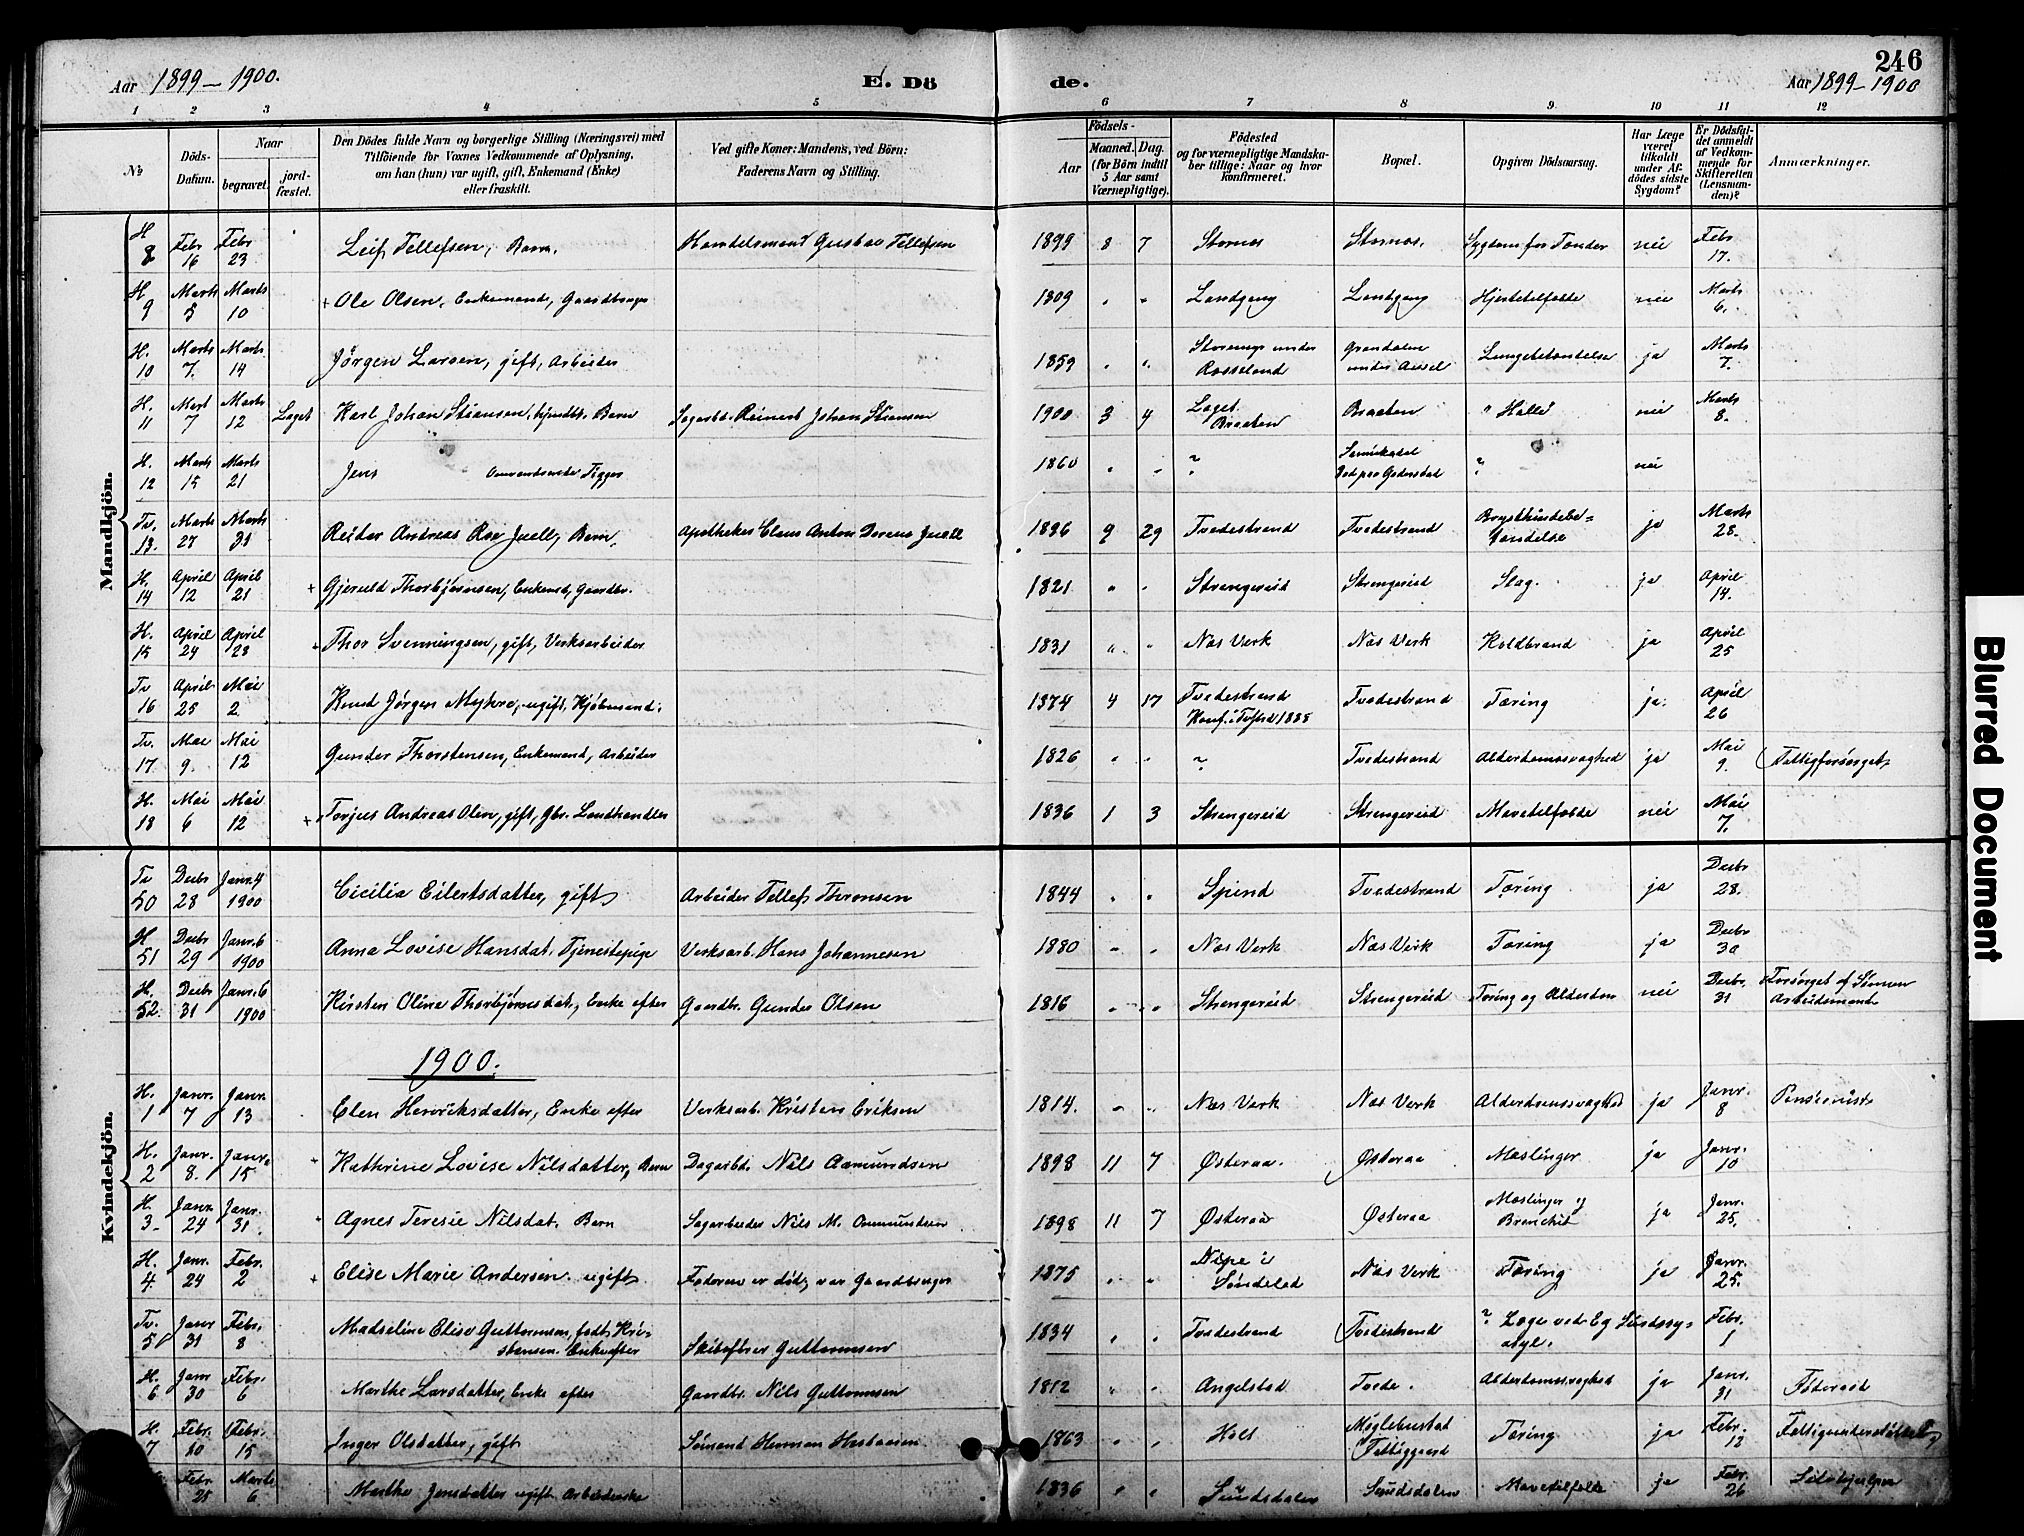 246
Aar 1899-1900.
E. Dö
de.
Aar 1899-1900
1 2 3 4 5 6 7 8 9. 10 11 12
No
Döds-Datum.
Naar
begravet.
jord-fæstet.
Den Dödes fulde Navn og borgerlige Stilling (Næringsvei) med
Tilföiende for Voxnes Vedkommende af Oplysning,
om han (hun) var ugift, gift, Enkemand (Enke)
eller fraskilt.
Ved gifte Koner: Mandens, ved Börn:
Faderens Navn og Stilling.
Födsels-
Aar
Maaned. Dag.
(for Börn indtil
5 Aar samt
Værnepligtige).
Födested
og for værnepligtige Mandska-
ber tillige: Naar og hvor
Konfirmeret.
Bopæl.
Opgiven Dödsaarsag.
Har Læge
været
tilkaldt
under Af-
dödes sidste
Sygdom?
Er Dödsfal-
det anmeldt
af Vedkom-
mende for
Skifteretten
(Lensman-
den)?
Anmærkninger.
Mandkjön.
H 8 Febr 16 Febr 23 Leif Tellefsen, Barn. Handelsmand Gustav Tellefsen 1899 8 7 Stornes Stornes. Sygdom for Tænder nei Febr 17.
H 9 Marts 5 Marts 10 + Ole Olsen, Enkemand, Gaardbruger 1809 " " Landgang Landgang Hjertetilfælde nei Marts 6.
H. 10 Marts 7. Marts 14 Jørgen Larsen, gift, Arbeider 1859 " " under Rosseland Grændalen under Lungebetændelse ja Marts 7.
H. 11 Mart 7 Marts 12 Laget Karl Johan Stiansen, hjmdbt. Barn Sagarbd. Reinert Johan Stiansen 1900 3 4 Laget Braaten Braaten "Halle" nei Marts 8.
H. 12 Marts 15 Marts 21 Jens Omvandrende Tigger 1860 " " ? Død paa Goderstad ? nei
Tv. 13. Marts 27 Marts 31 Reidar Andreas Roe Juell, Barn. Apotheker Claus Anton Juell 1896 9 29 Tvedestrand Tvedestrand Brysthindebe=tændelse ja Marts 28.
H. 14 April 12 April 21 + Gjeruld Thorbjørnsen, Enkemd, Gaardbr. 1821 " " Strengereid Strengereid Slag. ja April 14.
H. 15 April 24 April 28 Thor Svenningsen, gift, Verksarbeider 1831 " " Næs Verk Næs Verk Koldbrand ja April 25
Tv 16 April 25 Mai 2. Knud Jørgen Myhre, ugift, Kjøbmand. 1874 4 17 Tvedestrand Konf. i Tvestrd 1888 Tvedestrand Tæring ja. April 26
Tv. 17 Mai 9. Mai 12 Gunder Thorstensen, Enkemand, Arbeider 1826 " " ? Tvedestrand Alderdomssvaghed ja Mai 9. Fattigforsørget
H. 18 Mai 6 Mai 12 + Torjus Andreas Olsen, gift, Gbr. Landhandler 1836 1 3 Strengereid Strengereid Mavetilfælde nei Mai 7.
Kvindekjön.
Tv 50 Decbr 28 Janr. 4 1900 Cicilia Eilertsdatter, gift Arbeider Tellef Thronsen 1844 " " Spind Tvedestrand Tæring ja Decbr 28.
H. 51 Decbr 29 Janr. 6 1900 Anna Lovise Hansdat. Tjenestepige Verksarb. Hans Johannesen 1880 " " Næs Verk Næs Verk Tæring ja Decbr 30
H. 52. Decbr 31 Janr. 6 1900 Kirsten Oline Thorbjørnsdat, Enke efter Gaardbr. Gunder Olsen 1816 " " Strengereid Strengereid Tæring og Alderdom nei Decbr. 31 Forsørget af Sønnen Arbeidsmand
1900.
H. 1 Janr. 7 Janr. 13 Elen Henriksdatter, Enke efter Verksarb. Kristen Eriksen 1814. " " Næs Verk Næs Verk Alderdomssvaghed ja Janr. 8 Pensionist
H. 2 Janr. 8. Janr. 15 Kathrine Lovise Nilsdatter, Barn Dagarbd. Nils Aamundsen 1898 11 7 Østeraa. Østeraa Mæslinger ja Janr. 10
H. 3. Janr. 24 Janr. 31 Agnes Teresie Nilsdat. Barn Sagarbeider Nils M. Ommundsen 1898 11 7 Østeraa Østeraa Mæslinger og Bronchit ja Janr. 25.
H. 4 Janr. 24 Febr. 2 + Elise Marie Andersen. ugift Faderen er død, var Gaardbruger 1875 " " Nipe i Søndeled Næs Verk Tæring ja Janr. 25.
Tv. 5 Janr 31 Febr. 8 Madseline Elise Guttormsen, født Kri-stensen. Enke efter Skibsfører Guttormsen 1834 " " Tvedestrand Tvedestrand ? Læge ved Eg Sindssy=asyl. Febr. 1
H. 6 Janr 30 Febr. 6 Marthe Larsdatter, Enke efter Gaardbr. Nils Guttormsen 1812 " " Angelstad Tvede. Alderdomssvaghed ja Janr. 31 Føderaad
H. 7 Febr. 10 Febr. 15 Inger Olsdatter, gift Sømand Herman 1863 " " Holt Møglebustad Fattiggaard Tæring ja Febr. 12 Fattigunderstøttelse
Febr. 25 Marts 6 Marthe Jensdatter ugift Arbeiderske 1836 " " Sundsdalen Sundsdalen Mavetilfælde ja Febr. 26 Selvhjulpen
Blurred Document